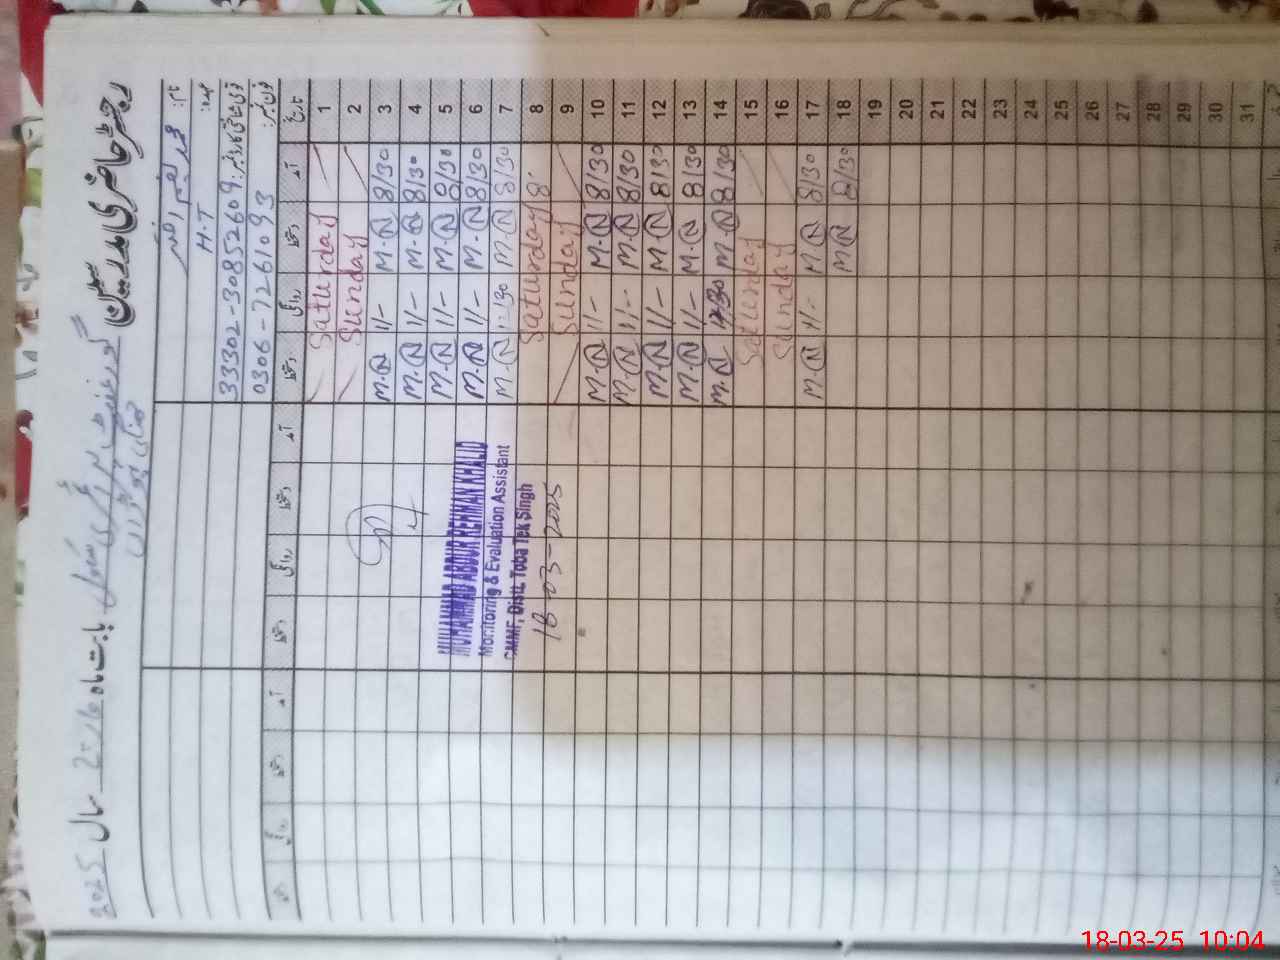 رجسٹر حاضری مدرسین گورنمنٹ پرائمری سکول
بابت ماہ مارچ 2025 سال
نام: محمد نعیم اختر
عہدہ: H.T
قومی شناختی کارڈ نمبر: 33302-30852609
فون نمبر: 0306-7261093
تاریخ آمد دستخط روانگی دستخط آمد دستخط روانگی دستخط آمد دستخط روانگی دستخط
1 Saturday
2 Sunday
3 8/30 M.N 1/- M.N
4 8/30 M.N 1/- M.N
5 8/30 M.N 1/- M.N
6 8/30 M.N 1/- M.N
7 8/30 M.N 12/30 M.N
8 Saturday
9 Sunday
10 8/30 M.N 1/- M.N
11 8/30 M.N 1/- M.N
12 8/30 M.N 1/- M.N
13 8/30 M.N 1/- M.N
14 8/30 M.N 12/30 M.N
15 Saturday
16 Sunday
17 8/30 M.N 1/- M.N
18 8/30 M.N
19
20
21
22
23
24
25
26
27
28
29
30
31
MUHAMMAD ABDUR REHMAN KHALID
Monitoring & Evaluation Assistant
CMMF, Distt. Toba Tek Singh
18-03-2025
18-03-25 10:04